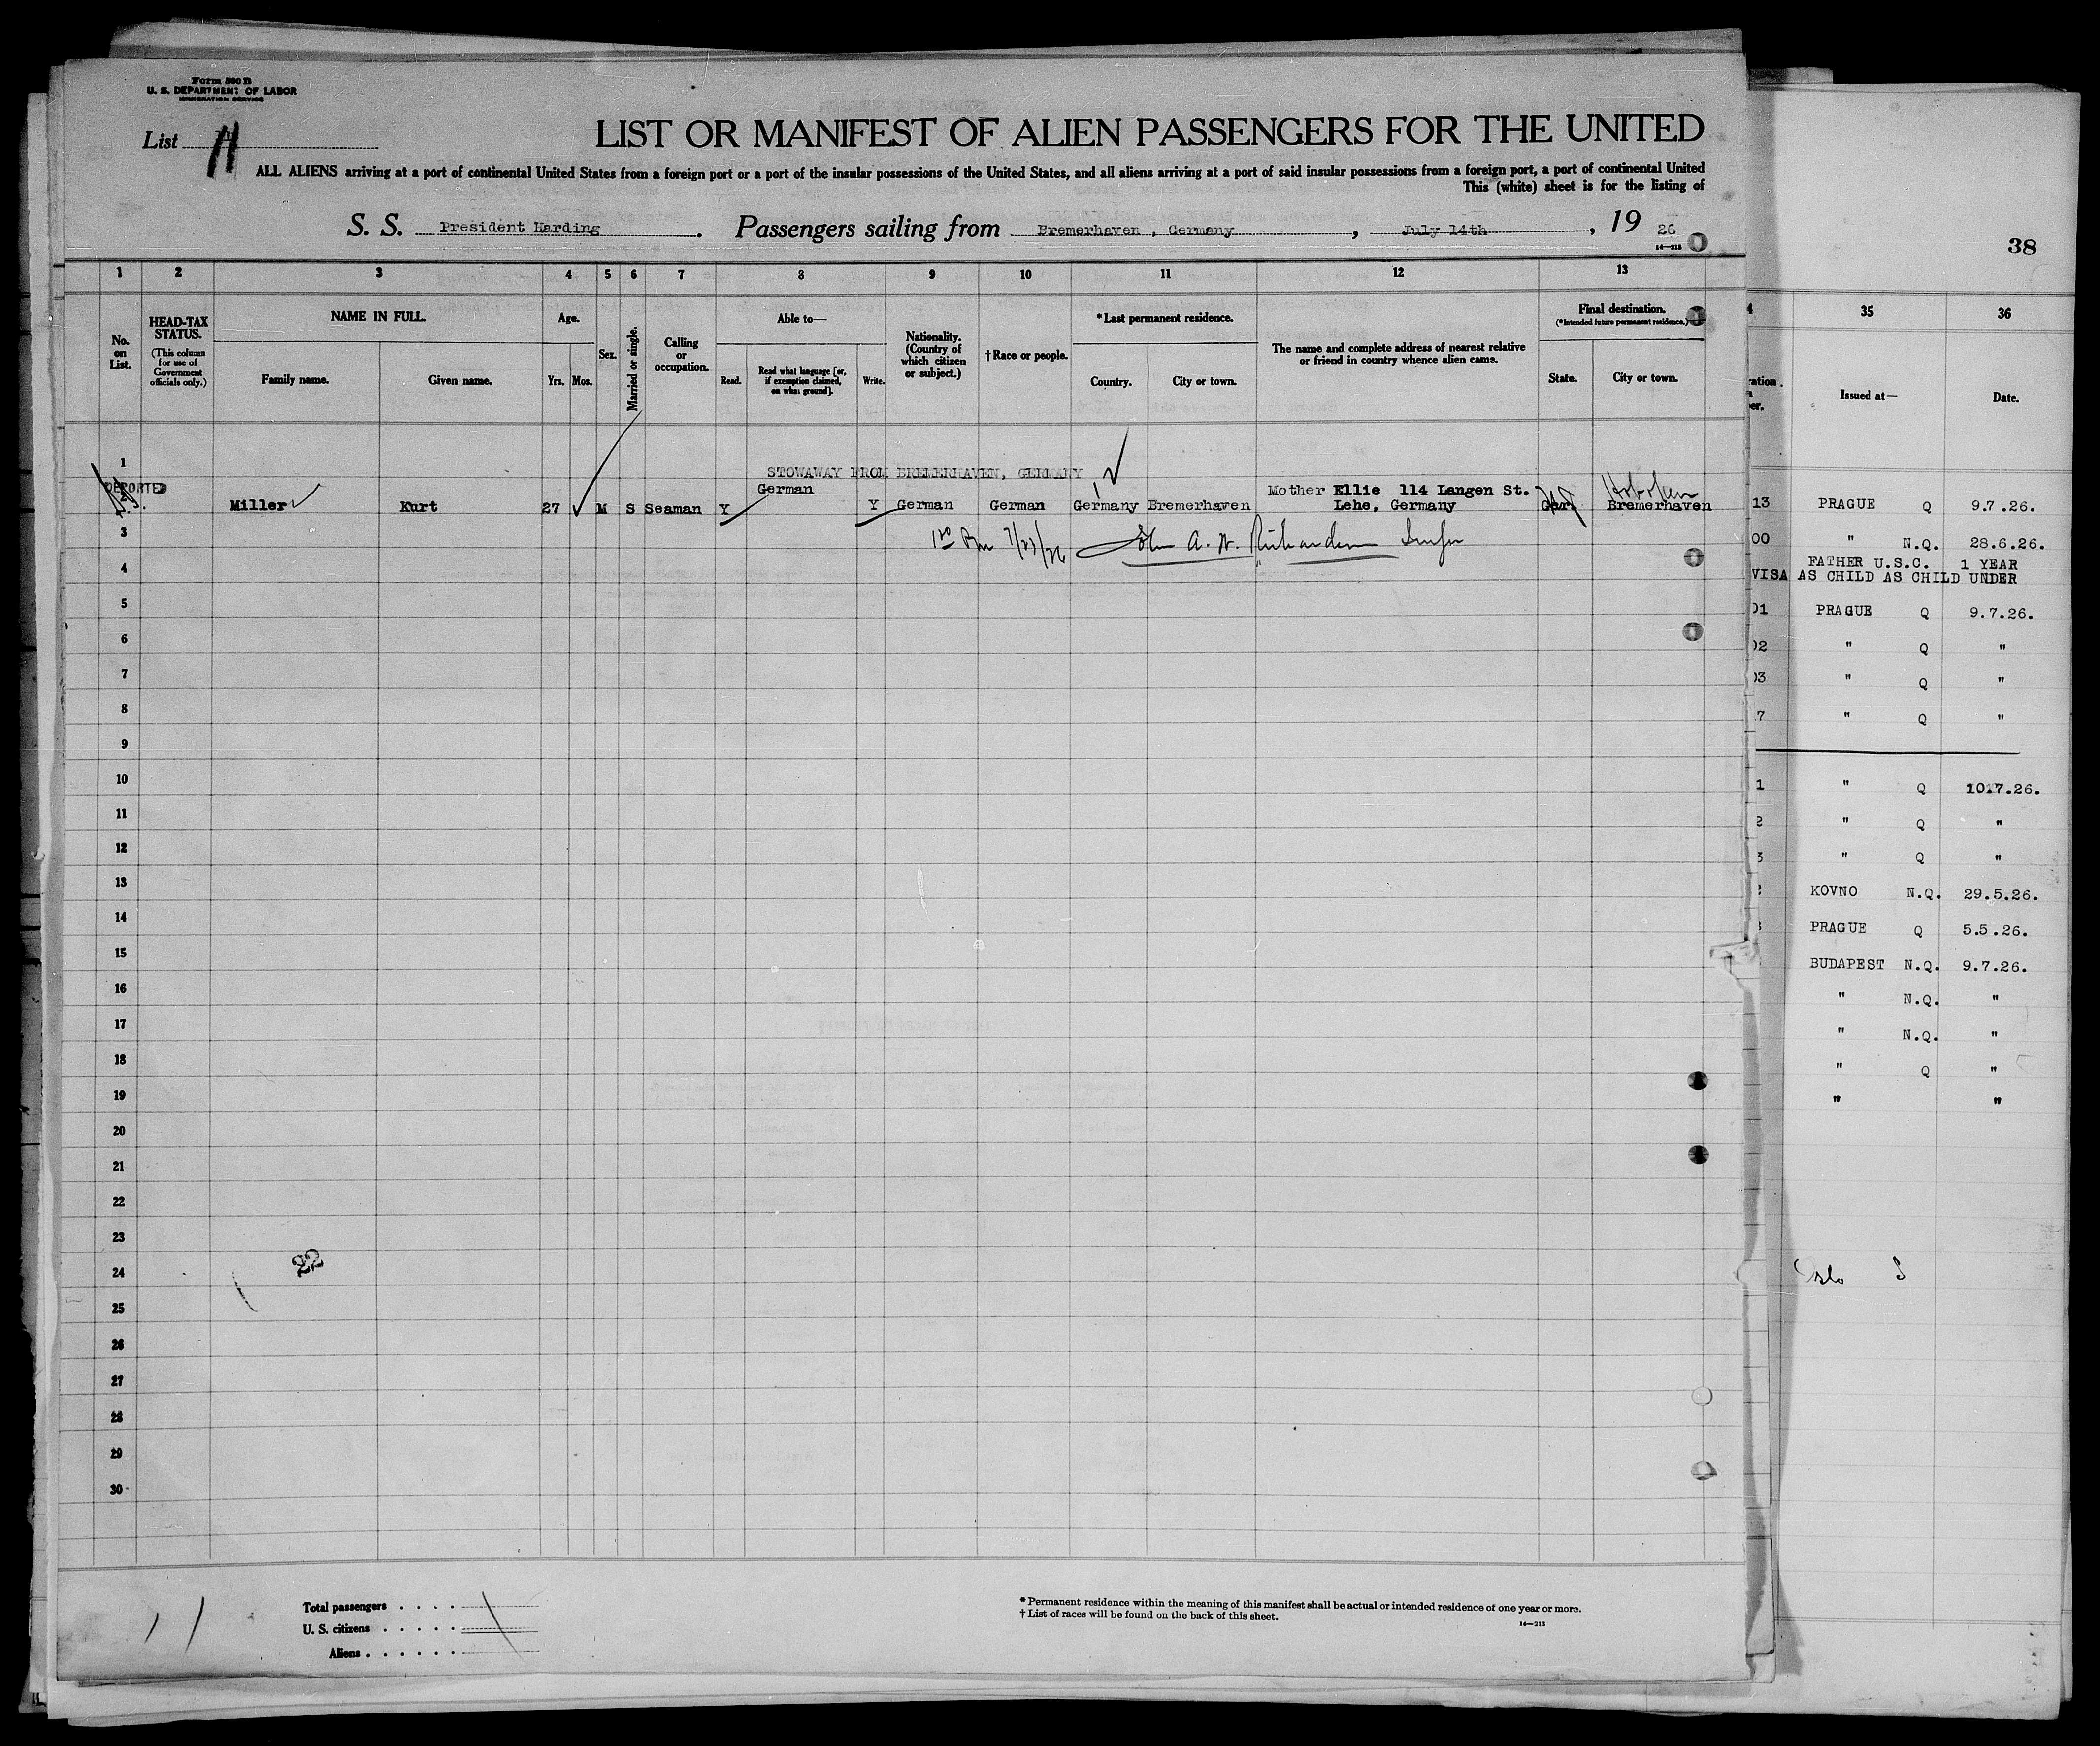 Form 500 B
U. S. DEPARTMENT OF LABOR
IMMIGRATION SERVICE
List 11
LIST OR MANIFEST OF ALIEN PASSENGERS FOR THE UNITED
ALL ALIENS arriving at a port of continental United States from a foreign port or a port of the insular possessions of the United States, and all aliens arriving at a port of said insular possessions from a foreign port, a port of continental United
This (white) sheet is for the listing of
S. S. President Harding. Passengers sailing from Bremerhaven, Germany, July 14th, 19 26
14—213
1 2 3 4 5 6 7 8 9 10 11 12 13
No. on List.
HEAD-TAX STATUS.
(This column for use of Government officials only.)
NAME IN FULL.
Family name. Given name.
Age.
Yrs. Mos.
Sex.
Married or single.
Calling or occupation.
Able to—
Read. Read what language [or, if exemption claimed, on what ground]. Write.
Nationality. (Country of which citizen or subject.)
†Race or people.
*Last permanent residence.
Country. City or town.
The name and complete address of nearest relative or friend in country whence alien came.
Final destination.
(*Intended future permanent residence.)
State. City or town.
1 STOWAWAY FROM BREMERHAVEN, GERMANY
DEPORTED
2 Miller Kurt 27 M S Seaman Y German Y German German Germany Bremerhaven Mother Ellie 114 Langen St. Hoboken
Lehe, Germany Bremerhaven
3 7/23/26 John A. W. Richardson
4
5
6
7
8
9
10
11
12
13
14
15
16
17
18
19
20
21
22
23
22
24
25
26
27
28
29
30
Total passengers
U. S. citizens
Aliens
* Permanent residence within the meaning of this manifest shall be actual or intended residence of one year or more.
† List of races will be found on the back of this sheet.
14—213
38
4 35 36
Issued at— Date.
13 PRAGUE Q 9.7.26.
00 " N.Q. 28.6.26.
FATHER U.S.C. 1 YEAR
VISA AS CHILD AS CHILD UNDER
01 PRAGUE Q 9.7.26.
02 " Q "
03 " Q "
7 " Q "
1 " Q 10.7.26.
2 " Q "
3 " Q "
KOVNO N.Q. 29.5.26.
PRAGUE Q 5.5.26.
BUDAPEST N.Q. 9.7.26.
" N.Q. "
" N.Q. "
" Q "
" "
Oslo S